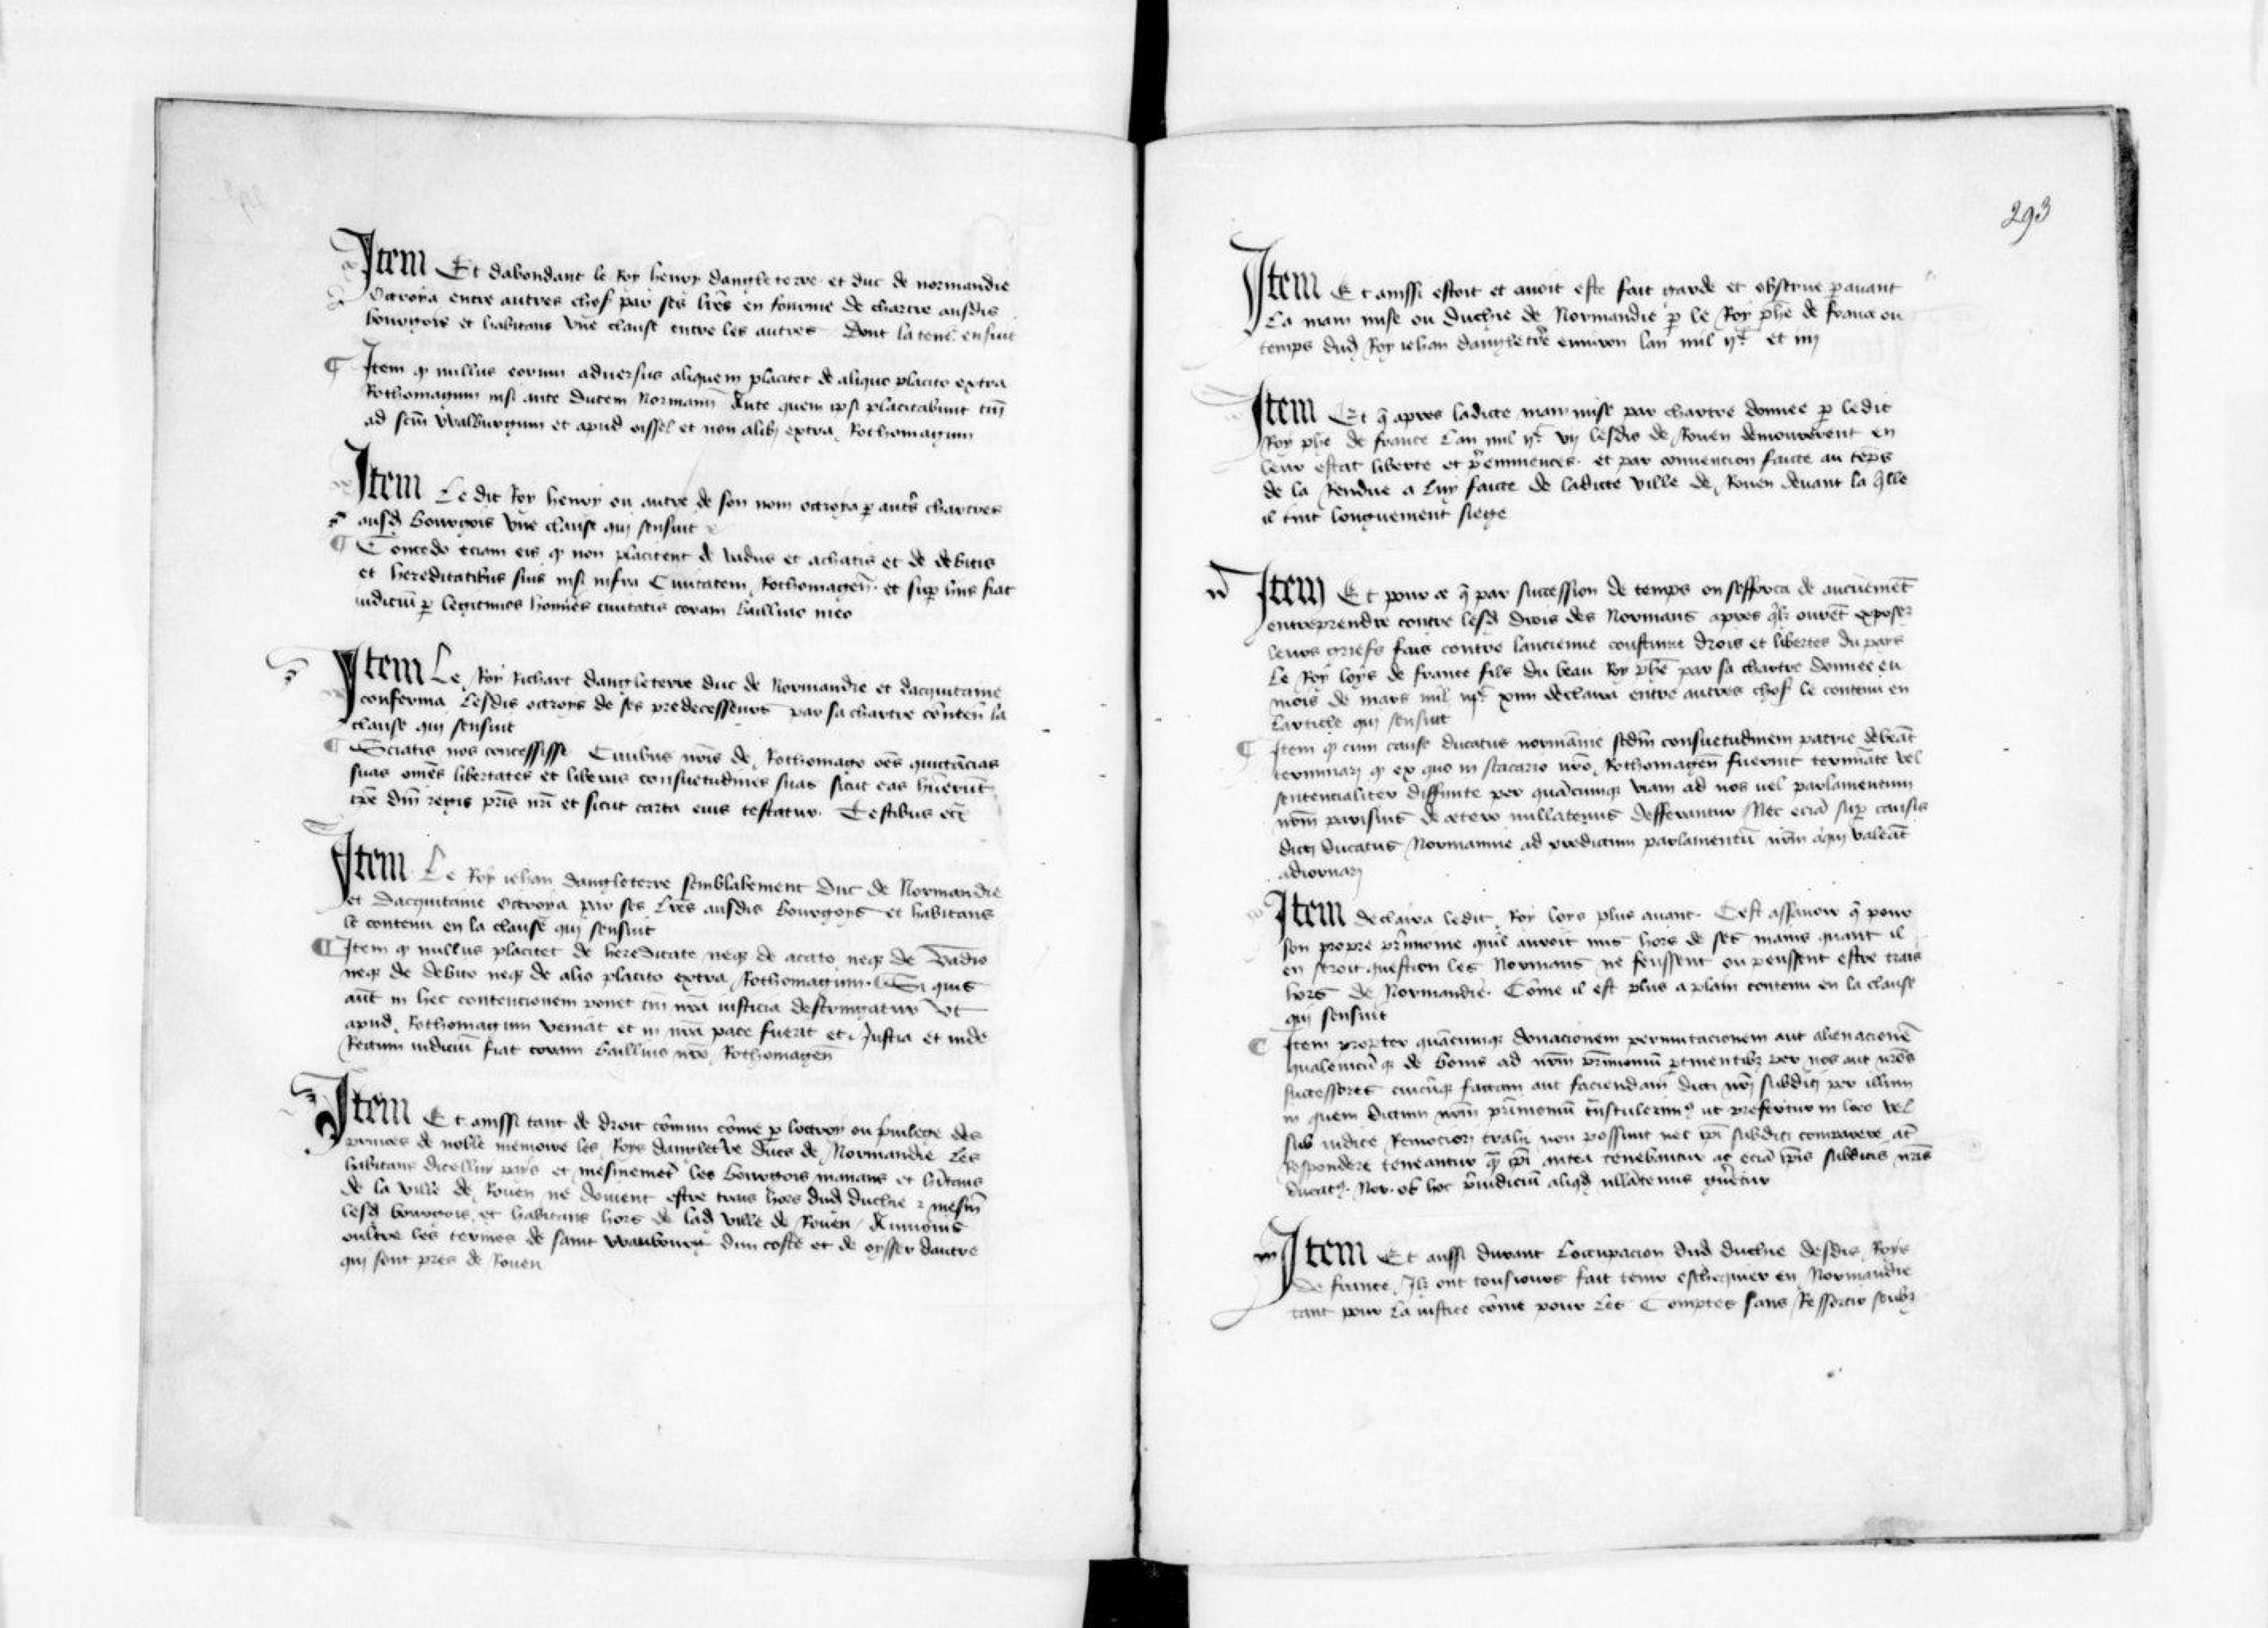 Item Et dabondant le Roy henry dangleterre et duc de normandie
Octroya entre autres chos par ses lrēs en fourme de chartre ausdis
bourgois et habitans vne clause entre les autres Dont la tene ensuit
¶ Item q nullus eorum aduersus aliquem placitet de aliquo placito extra
Rothomagum nisi ante ducem Normanñ Ante quem ipsi placitabunt tm̄
ad scm̄ Walburgum et apud oissel et non alibi extra Rothomagum
Item Le dit Roy henry ou autre de son nom octroya p̱ autres chartres
ausd bourgois vne clause qui sensuit
¶ Concedo eciam eis q non placitent de vadiis et achatis et de debitis
et hereditatibus suis nisi infra Ciuitatem Rothomageñ et sup hiis fiat
iudiciū p̱ legitimos homīes ciuitatis coram Balliuo meo
Item Le Roy Richart dangleterre duc de Normandie et dacquitaine
conferma Lesdis octroys de ses predecesseurs par sa chartre contenˉ la
clause qui sensuit
¶ Sciatis nos concessisse Ciuibus nrīs de Rothomago oēs quittācias
suas omēs libertates et liberas consuetudines suas sicut eas hūerūt
tpē dnī regis prīs nrī et sicut carta eius testatur. Testibus etc̄
Item Le Roy iehan dangleterre semblabement Duc de Normandie
et Dacquitaine Octroya par ses Lrēs ausdis Bourgoys et habitans
le contenu en la clause qui sensuit
¶ Item q nullus placitet de hereditate neq̨ de acato neq̨ de Vadio
neq̨ de debito neq̨ de alio placito extra Rothomagum. Si quis
aūt in hec contencionem ponet tm̄ nrā iusticia destringatur Vt
apud Rothomagum veniāt et in nrā pace fuerit et Justicia et inde
Rectum iudiciū fiat coram Balliuo nrō Rothomageñ
Item Et aussi tant de droit cōmun cōme p̱ loctroy ou priuilege des
princes de noble memoire les Roys dangletre ducs de Normandie Les
habitans dicelluy pays et mesmemēt les bourgois manans et hītans
de la ville de Rouen ne doiuent estre trais hors dud duchie & mesm̄
lesd bourgois et habitans hors de lad ville de Rouen Aumoins
oultre les termes de saint Waubourg dun coste et de oyssel dautre
qui sont pres de Rouen
293
Item Et aussi estoit et auoit este fait garde et obserue p̱auant
La main mise ou duchie de Normandie p̱ le Roy phē de france ou
temps dud Roy iehan dangletrē enuiron lan mil ijᶜ et iiij
Item Et q̄ apres ladicte main mise par chartre donnee p̱ ledit
Roy phe de france Lan mil ijᶜ vij lesdis de Rouen demourerent en
leur estat liberte et p̄eminences et par conuencion faicte au tēps
de la Rendue a Luy faicte de ladicte ville de Rouen deuant la q̄lle
il tint longuement siege
Item Et pour ce q̄ par succession de temps on sefforca de aucunemēt
entreprendre contre lesd drois des Normans apres q̄lz ourēt exposer
leurs griefs fais contre lancienne coustume drois et libertes du pays
Le Roy loys de france fils du beau Roy phē par sa chartre donnee en
mois de mars mil iijᶜ xiiii declaira entre autres chos le contenu en
Larticle qui sensuit
¶ Item q cum cause ducatus normānie scdm̄ consuetudinem patrie debeāt
terminari q ex quo in scacario nrō Rothomageñ fuerint termināte vel
sentencialiter diffinite per quācumq̨ viam ad nos uel parlamentum
nrm̄ parisius de cetero nullatenus defferantur Nec eciā sup̱ causis
dicti ducatus Normannie ad predictum parlamentū nrm̄ aliqui valeāt
adiornari
Item declaira ledit Roy loys plus auant. Cest assauoir q̄ pour
son propre pr̄imoine quil auroit mis hors de ses mains quant il
en seroit question les Normans ne feussent ou peussent estre trais
hors de Normandie. Cōme il est plus a plain contenu en la clause
qui sensuit
¶ Item propter quācumq̨ donacionem permutacionem aut alienacionē
qualemcūq̨ de bonis ad nrm̄ pr̄imoniū p̱tinentibz per nos aut nrōs
successores cuicūq̨ factam aut faciendam dicti nrī subditi per illum
in quem dictum nrm̄ pr̄imoniū trāstulerimꝰ ut prefertur in loco vel
sub iudice Remociori trahi non possint nec ipī subditi comparere aᶜ
Respondere teneantur q̄ ipī antea tenebantur ac eciā ipīs subditis nrīs
ducatꝰ. Nor. ob hoc p̄iudiciū aliqd nllatenus gn̄etur
Item Et aussi durant Loccupacion dud duchie desdis Roys
de france Ilz ont tousiours fait tenir eschequier en Normandie
tant pour La iustice cōme pour Les Comptes sans Ressortir soubz